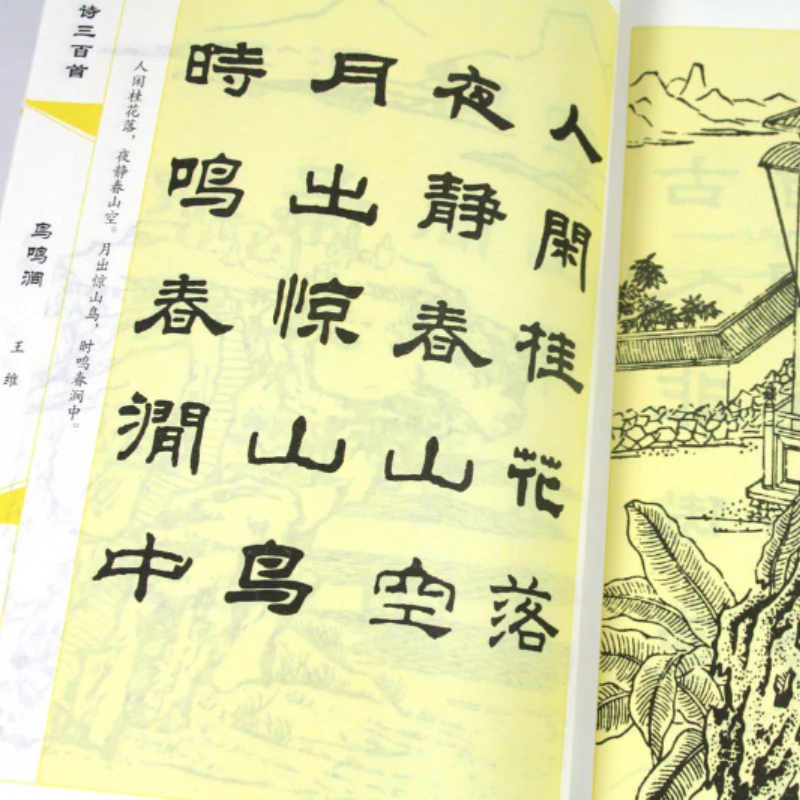 人閑桂花落
夜静春山空
月出惊山鸟
時鸣春澗中
人闲桂花落，夜静春山空。月出惊山鸟，时鸣春涧中。
诗三百首
鸟鸣涧
王维